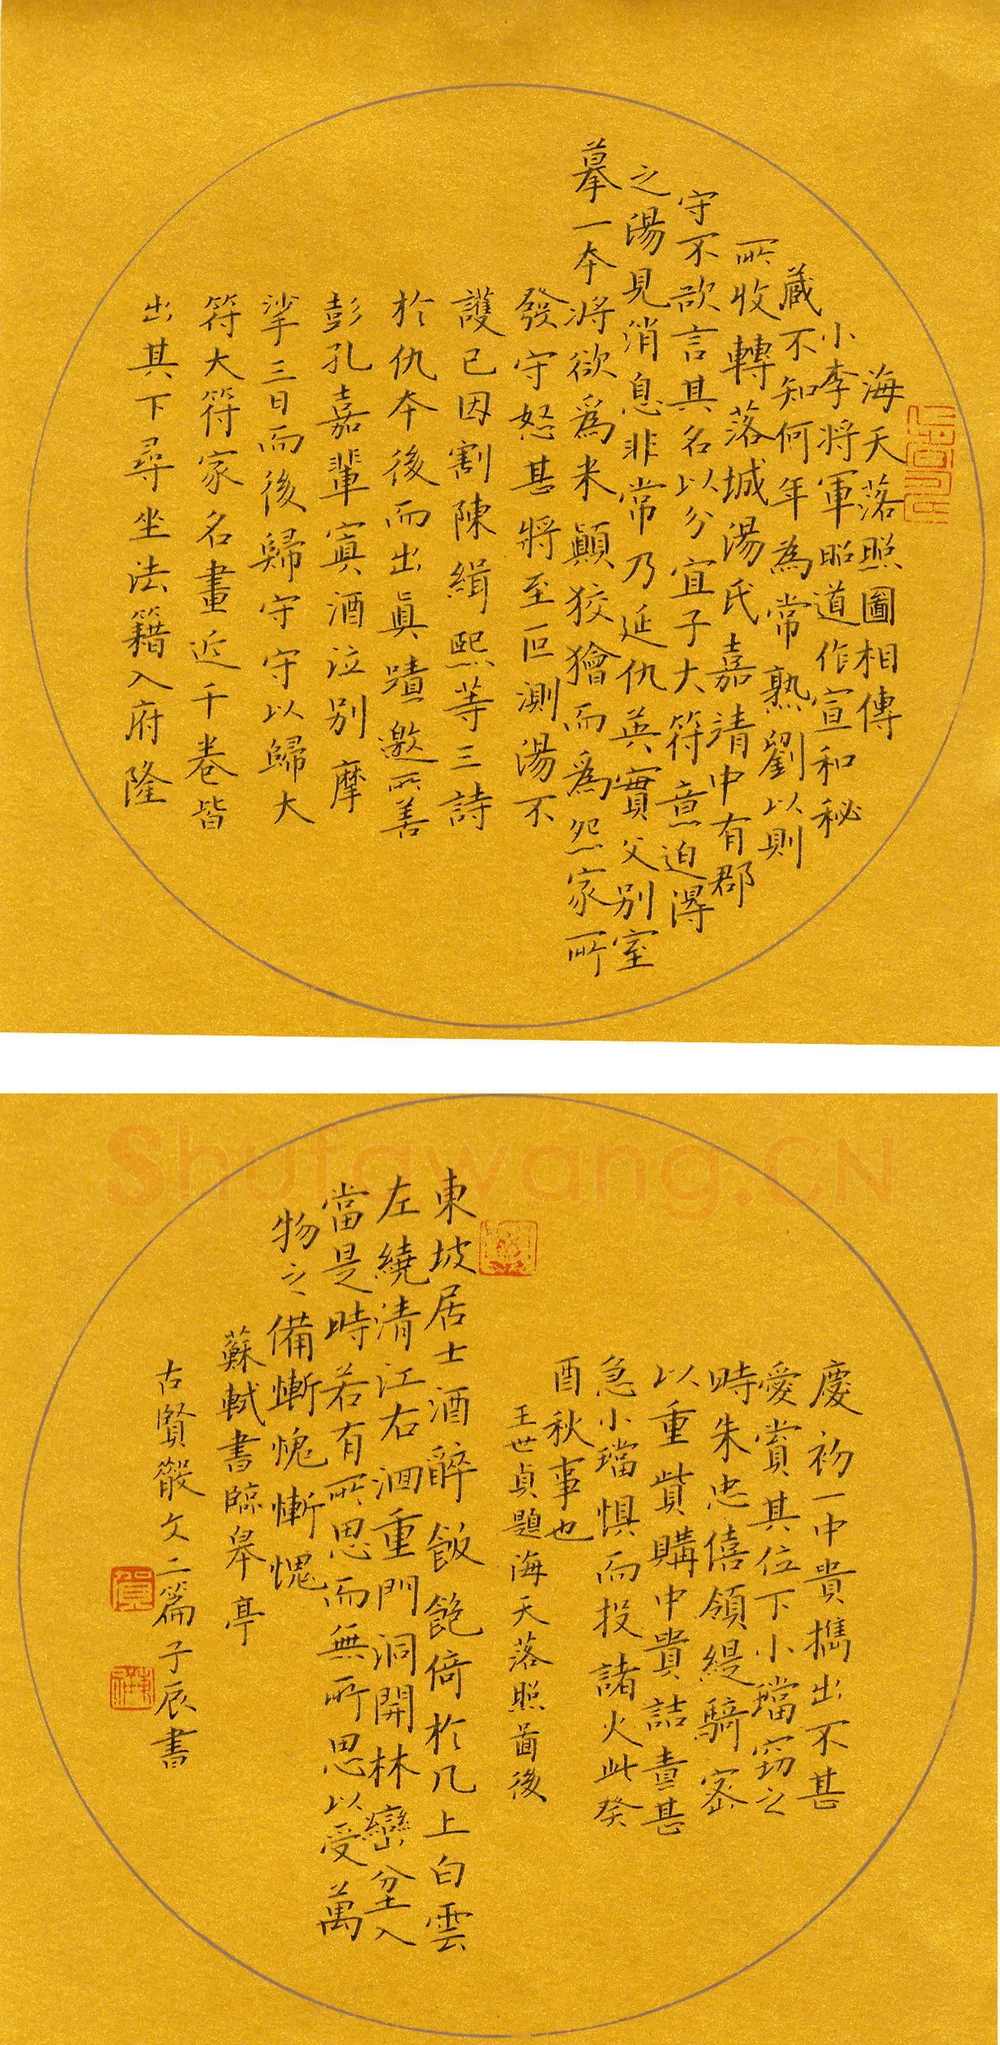 海天落照圖相傳
小李將軍昭道作宣和秘
藏不知何年為常熟劉以則
所收轉落城湯氏嘉清中有郡
守不欲言其名以分宜子大符意迫得
之湯見消息非常乃延仇英實父別室
摹一本將欲為米顛狡獪而為怨家所
發守怒甚將至叵測湯不
護已因割陳緝熙等三詩
於仇本後而出真蹟邀所善
彭孔嘉輩寘酒泣別摩
挲三日而後歸守守以歸大
符大符家名畫近千卷皆
出其下尋坐法籍入府隆
慶初一中貴攜出不甚
愛賞其位下小璫竊之
時朱忠僖領緹騎密
以重貲購中貴詰責甚
急小璫懼而投諸火此癸
酉秋事也
王世貞題海天落照圖後
東坡居士酒醉飯飽倚於几上白雲
左繞清江右洄重門洞開林巒坌入
當是時若有所思而無所思以受萬
物之備慚愧慚愧
蘇軾書臨皋亭
古賢散文二篇子辰書
Shufawang.CN